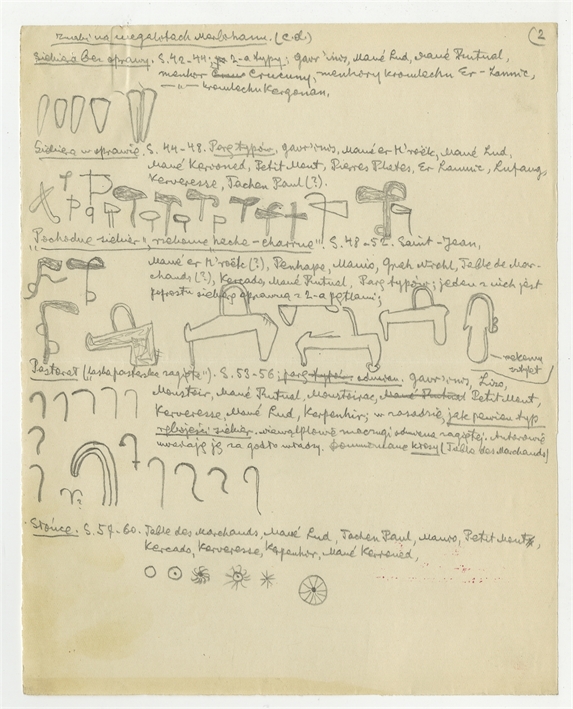 Znaki na megalitach Morbihanu. (c.d.) (2
Siekiera bez oprawy. S. 42-44; 2-a typy; Gavr'inis, Mané Lud, Mané Rutual,
menhir Crucuny, menhiry kromlechu Er-Lannic,
—"— kromlechu Kergonan,
Siekiera w oprawie. S. 44-48. Parę typów. Gavr'inis, Mané er H'roëk, Mané Lud,
Mané Kervoned, Petit Mont, Pierres Plates, Er Lannic, Lufang,
Kerveresse, Tachen Paul (?).
"Pochodne siekier", "hache-charrue" S. 48-52. Saint-Jean,
Mané er H'roëk (?), Penhape, Manio, Table de Mar-
chands (?), Kercado, Mané Rutual, Parę typów; jeden z nich jest
poprostu siekierą oprawną z 2-a pętlami;
rekomy
Pastorał ("laska pasterska zagięta"). S. 53-56; parę typów odmian. Gavr'inis,
Moustoir, Mané Rutual, Moustoirac, Mané Rutual Petit Mont,
Kerveresse, Mané Lud, Kerpenhir; w zasadzie, jak pewien typ
rękojeści siekier. zagiętej. Autorowie
uważają ją za godło władzy. krosy (Table des Marchands)
Słońce. S. 57-60. Table des Marchands, Mané Lud, Tachen Paul, Petit Mont,
Kercado, Kerveresse, Kerpenhir, Mané Kervoned,